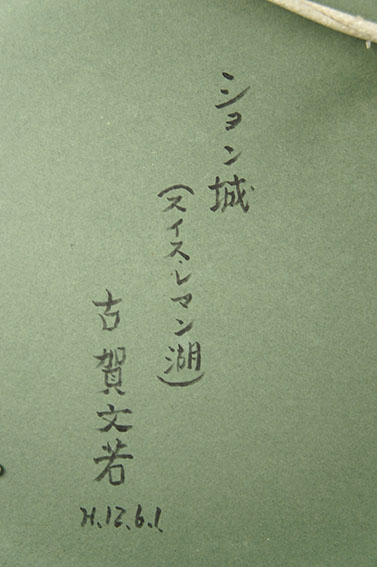 ション城
(スイス・レマン湖)
古賀文若
H.12.6.1.